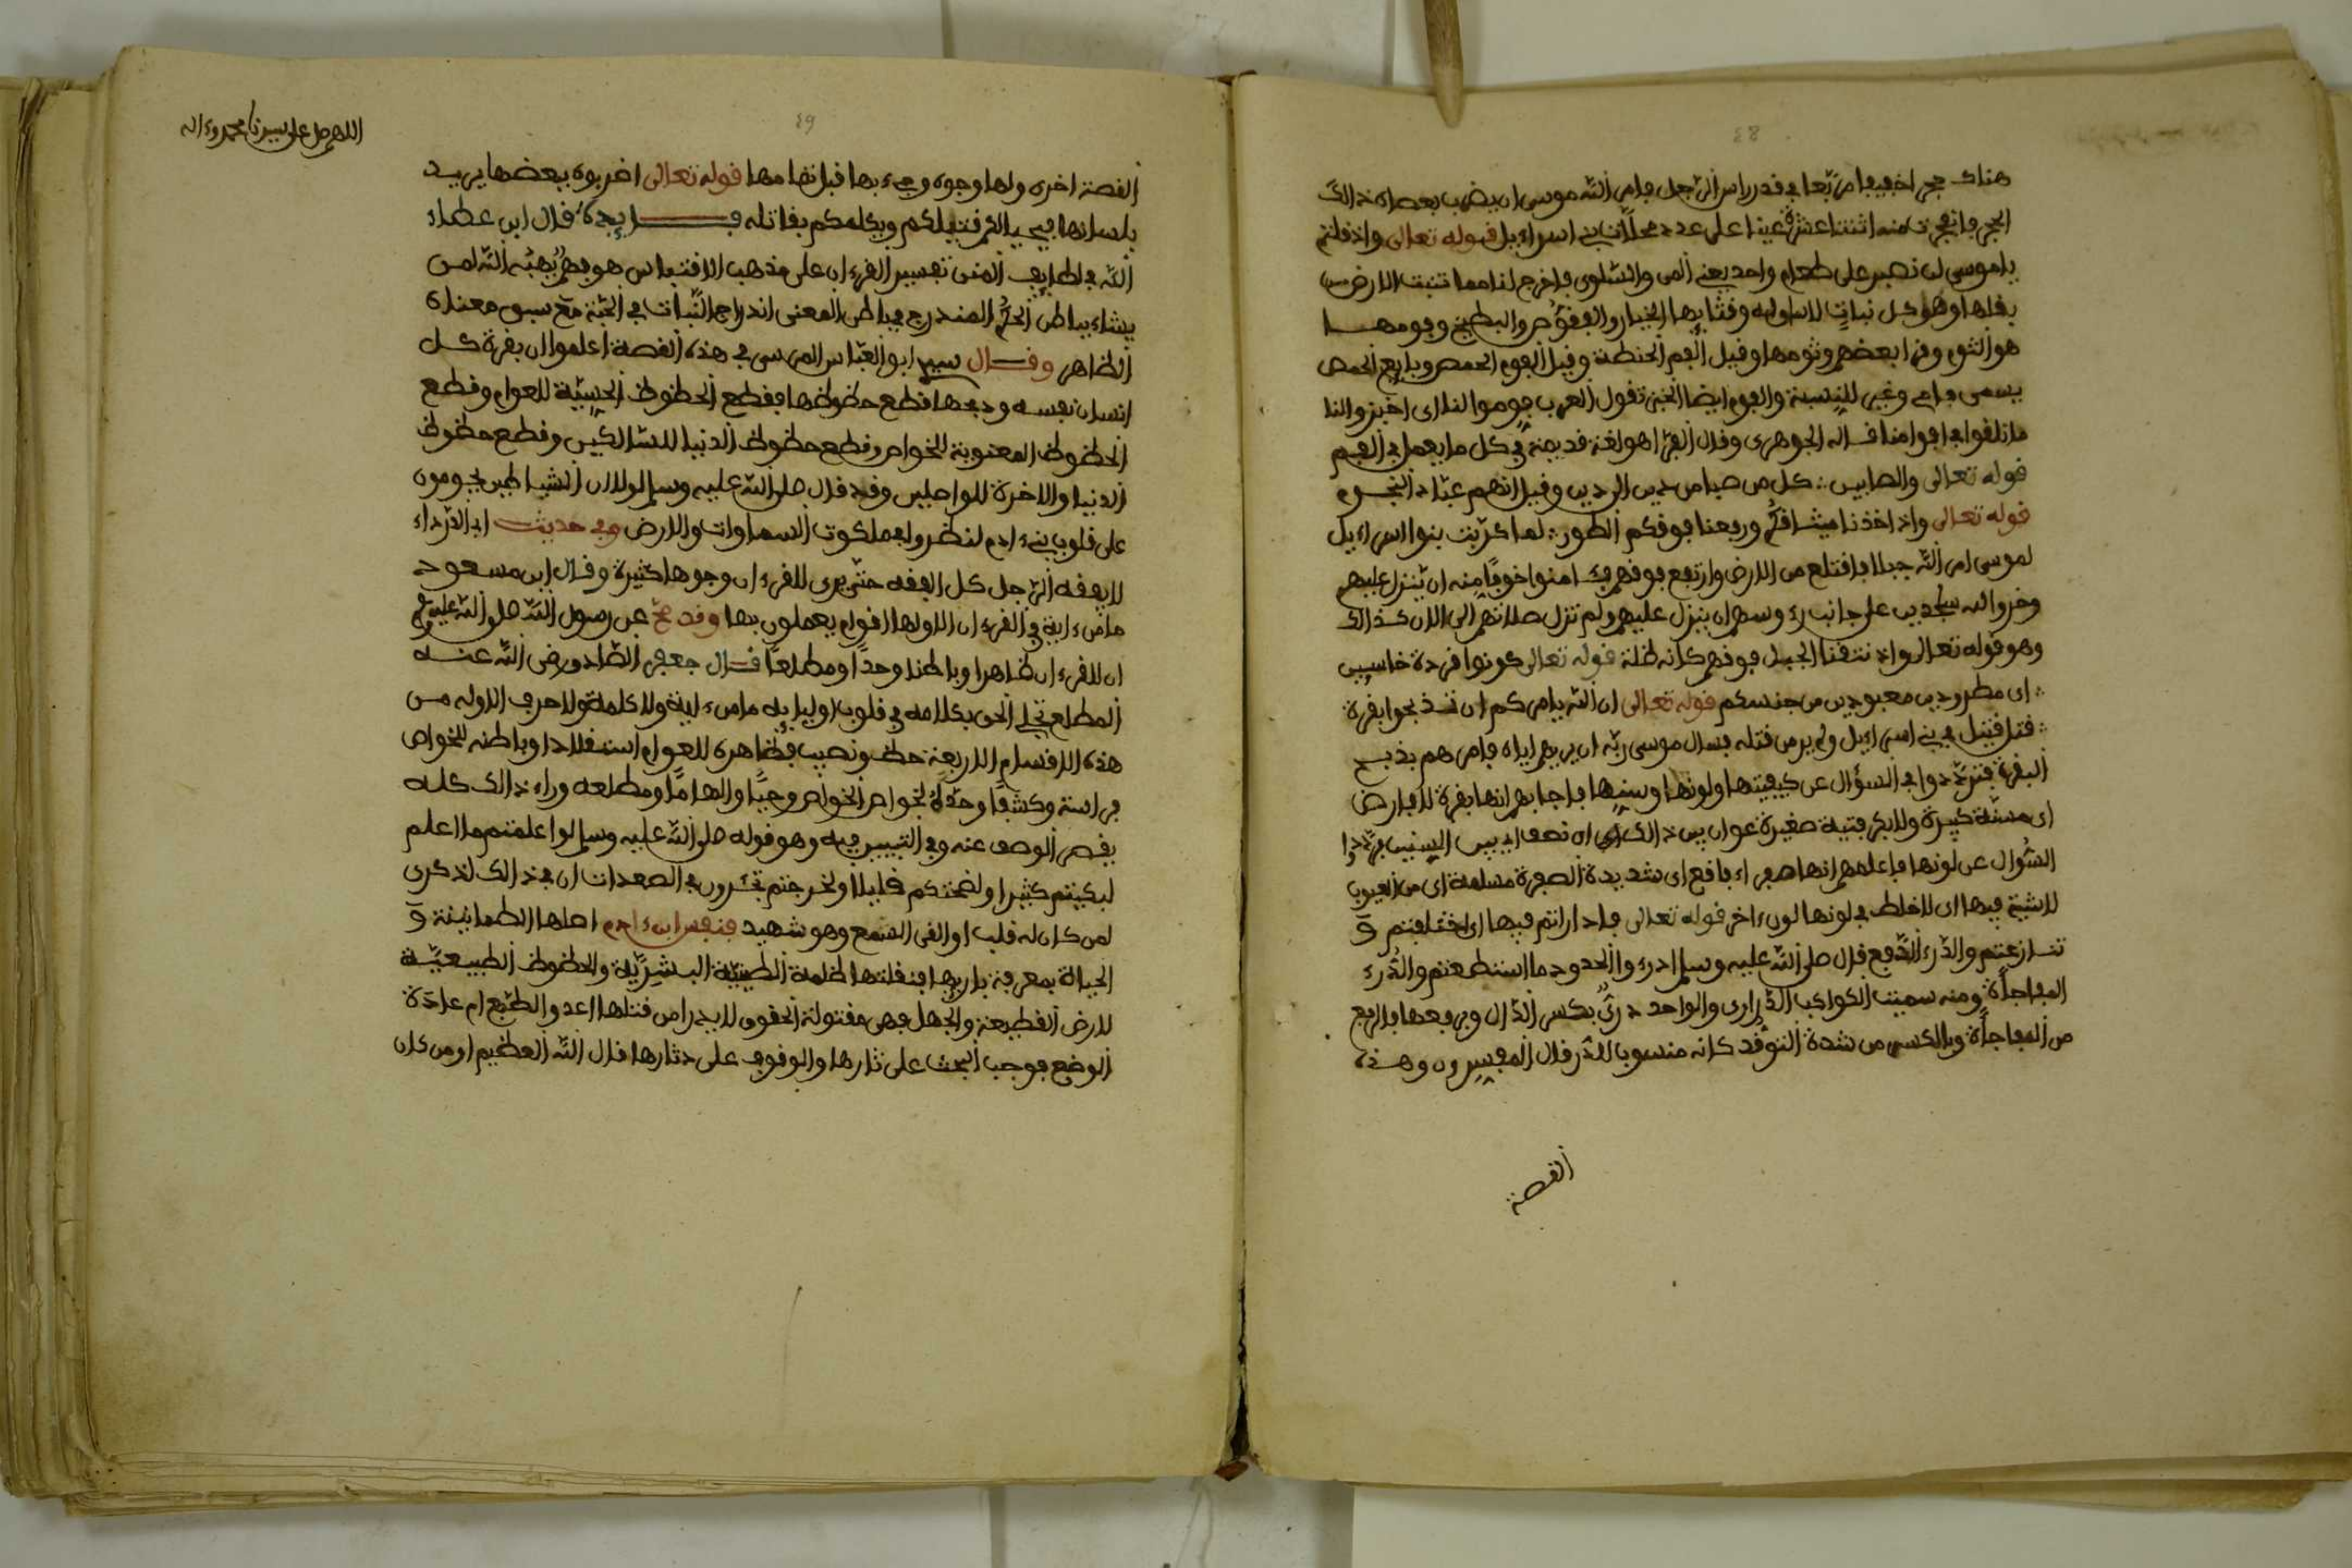 هناك حجر اخفيفا مربعا في قدر راس الرجل فامر الله موسى ان يضرب بعصاه ذالك
الحجر فانفجرت منه اثنتا عشرة عينا على عدد محلات بني اسراءيل قوله تعالى واذ قلتم
يا موسى لن نصبر على طعام واحد يعني المن والسلوى فاخرج لنا مما تنبت الارض من
بقلها وهو كل نبات لا ساق له وقثايها الخيار والفقوص والبطيخ وفومها
هو الثوم وقرا بعضهم وثومها وقيل الفوم الحنطة وقيل الفوم الحمص وبايع الحمص
يسمى فامي وغير للنسبة والفوم ايضا الخبز تقول العرب فوموا لنا اى اخبزوا لنا
قاله الجوهري وقال الفرا هو لغة قديمة في كل ما يعمل في الفم
قوله تعالى والصابين كل من صبا من دين الى دين وقيل انهم عباد النجوم
قوله تعالى واذ اخذنا ميثاقكم ورفعنا فوقكم الطور لما كذبت بنوا اسراءيل
لموسى امر الله جبلا فاقتلع من الارض وارتفع فوقهم فـ امنوا خوفا منه ان ينزل عليهم
وخروا لله ساجدين على جانب رءوسهم ان ينزل عليهم ولم تزل صلاتهم الى الان كذالك
وهو قوله تعالى واذ نتقنا الجبل فوقهم كانه ظلة قوله تعالى كونوا قردة خاسيين
اى مطرودين معبودين من جنسكم قوله تعالى ان الله يامركم ان تذبحوا بقرة
قتل قتيل في بني اسراءيل ولم ير من قتله فسال موسى ربه ان يريهم اياه فامرهم بذبح
البقرة فترددوا في السؤال عن كيفيتها ولونها وسنها فاجابهم انها بقرة لا فارض
اى مسنة كبيرة ولا بكر فتية صغيرة عوان بين ذالك اى نصف اى بين السنين فرددوا
السؤال عن لونها فاعلمهم انها صفراء فاقع اى شديدة الصفرة مسلمة اى من العيوب
لا شية فيها اى لا خلط في لونها لون ءاخر قوله تعالى فادارأتم فيها اى اختلفتم و
تنازعتم والدرء الدفع قال صلى الله عليه وسلم ادرءوا الحدود ما استطعتم والدرء
المفاجأة ومنه سميت الكواكب الدراري والواحد دري بكسر الدال وبرفعها فالرفع
من المفاجأة وبالكسر من شدة التوقد كانه منسوب للدر قال المفسرون وهذه
القصة
اللهم صل على سيدنا محمد وءاله
٤٩
القصة اخرى ولها وجوه وجيء بها قبل تمامها قوله تعالى اضربوه ببعضها يريد
بلسانها فيحيى لكم قتيلكم ويكلمكم بقاتله فـــايدة قال ابن عطاء
الله في لطايف المنن تفسير القرءان على مذهب الاقتباس هو فهم يهبه الله لمن
يشاء بباطن الحكم المندرج في باطن المعنى اندراج النبات في الحبة مع سبق معناه
الظاهر وقـال سيدي ابو العباس المرسي في هذه القصة اعلموا ان بقرة كل
انسان نفسه وذبحها قطع حظوظها فقطع الحظوظ الحسية للعوام وقطع
الحظوظ المعنوية للخواص وقطع حظوظ الدنيا للسالكين وقطع حظوظ
الدنيا والاخرة للواصلين وقد قال صلى الله عليه وسلم لولا ان الشياطين يحومون
على قلوب بني ءادم لنظروا في ملكوت السماوات والارض وفي حديث ابي الدرداء
لا يفقه الرجل كل الفقه حتى يرى للقرءان وجوها كثيرة وقـال ابن مسعود
ما من ءاية في القرءان الا ولها اقوام يعملون بها وقد صح عن رسول الله صلى الله عليه وسلم
ان للقرءان ظاهرا وباطنا وحدا ومطلعا قـال جعفر الصادق رضي الله عنه
المطلع تجلي الحق بكلامه في قلوب اوليايه ما من ءاية ولا كلمة ولا حرف الا وله من
هذه الاقسام الاربعة حظ ونصيب فظاهره للعوام استقلالا وباطنه للخواص
فراسة وكشفا وحده لخواص الخواص وحيا والهاما ومطلعه وراء ذالك كله
يقصر الوصف عنه وفي التيسير فيه وهو قوله صلى الله عليه وسلم لو اعلمتم ما اعلم
لبكيتم كثيرا ولضحكتم قليلا ولخرجتم تجرون في الصعدات ان في ذالك لذكرى
لمن كان له قلب او القى السمع وهو شهيد فنفس ابن ءادم اصلها الطمانينة و
الحياة بمعرفة باريها فنقلتها ظلمة الطينية البشرية والحظوظ الطبيعية
لارض القطيعة والجهل فهي مقتولة الحقوق لا يدرا من قتلها العدو الطبع ام عادة
الوضع فوجب البحث على ثارها والوقوف على دثارها قال الله العظيم اومن كان